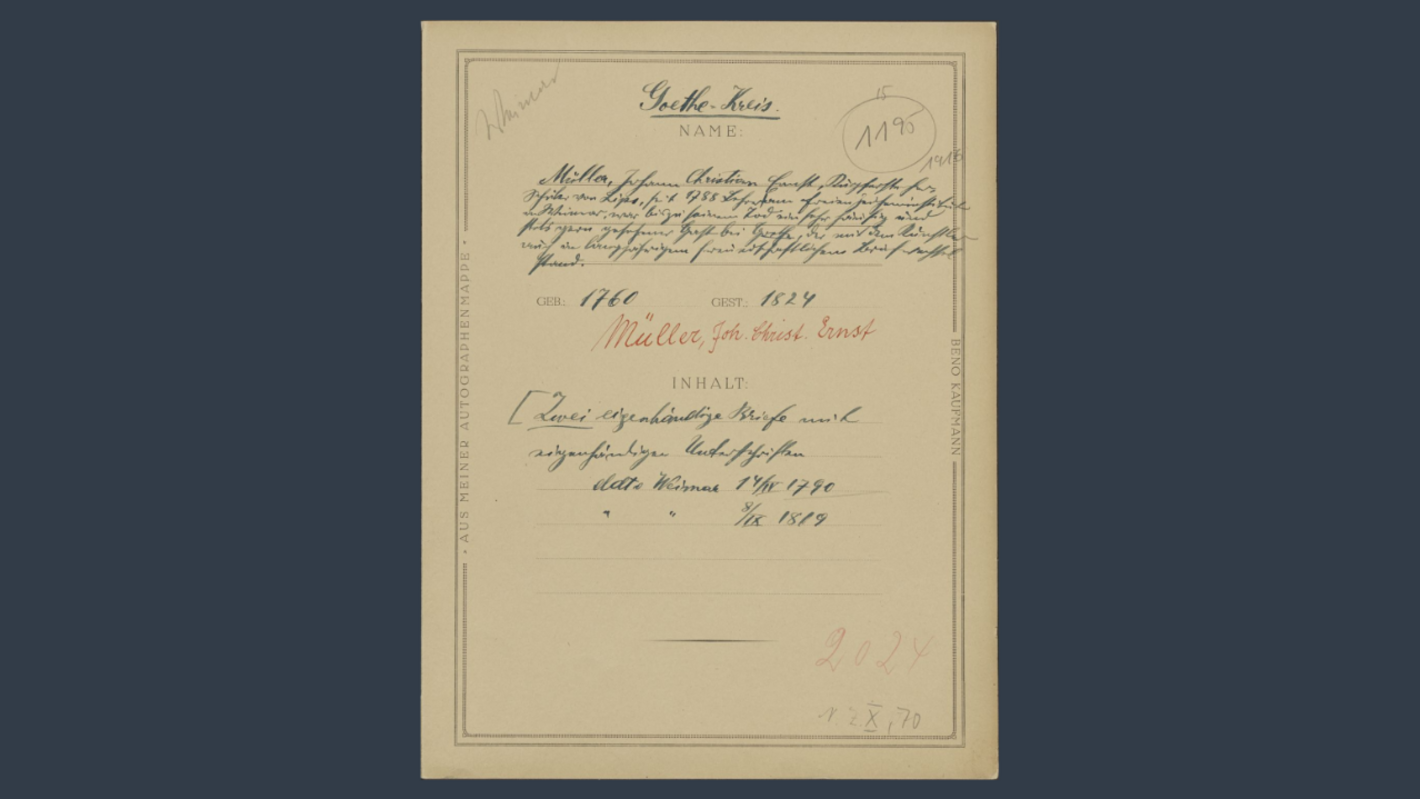 Weimar
Goethe-Kreis.
NAME:
15
1195
1916
Müller, Johann Christian Ernst, Kupferstecher,
Schüler von Lips, seit 1788 Lehrer am freien Zeicheninstitute
in Weimar, war bis zu seinem Tod ein sehr häufig und
stets gern gesehener Gast bei Goethe, der mit dem Künstler
auch in langjährigem freundschaftlichem Briefwechsel
stand.
GEB.: 1760 GEST.: 1824
Müller, Joh. Christ. Ernst
INHALT:
[Zwei eigenhändige Briefe mit
eigenhändigen Unterschriften
ddto Weimar 14/IV 1790
" " 8/IX 1819
2024
N. Z. X, 70
· AUS MEINER AUTOGRAPHENMAPPE ·
BENO KAUFMANN